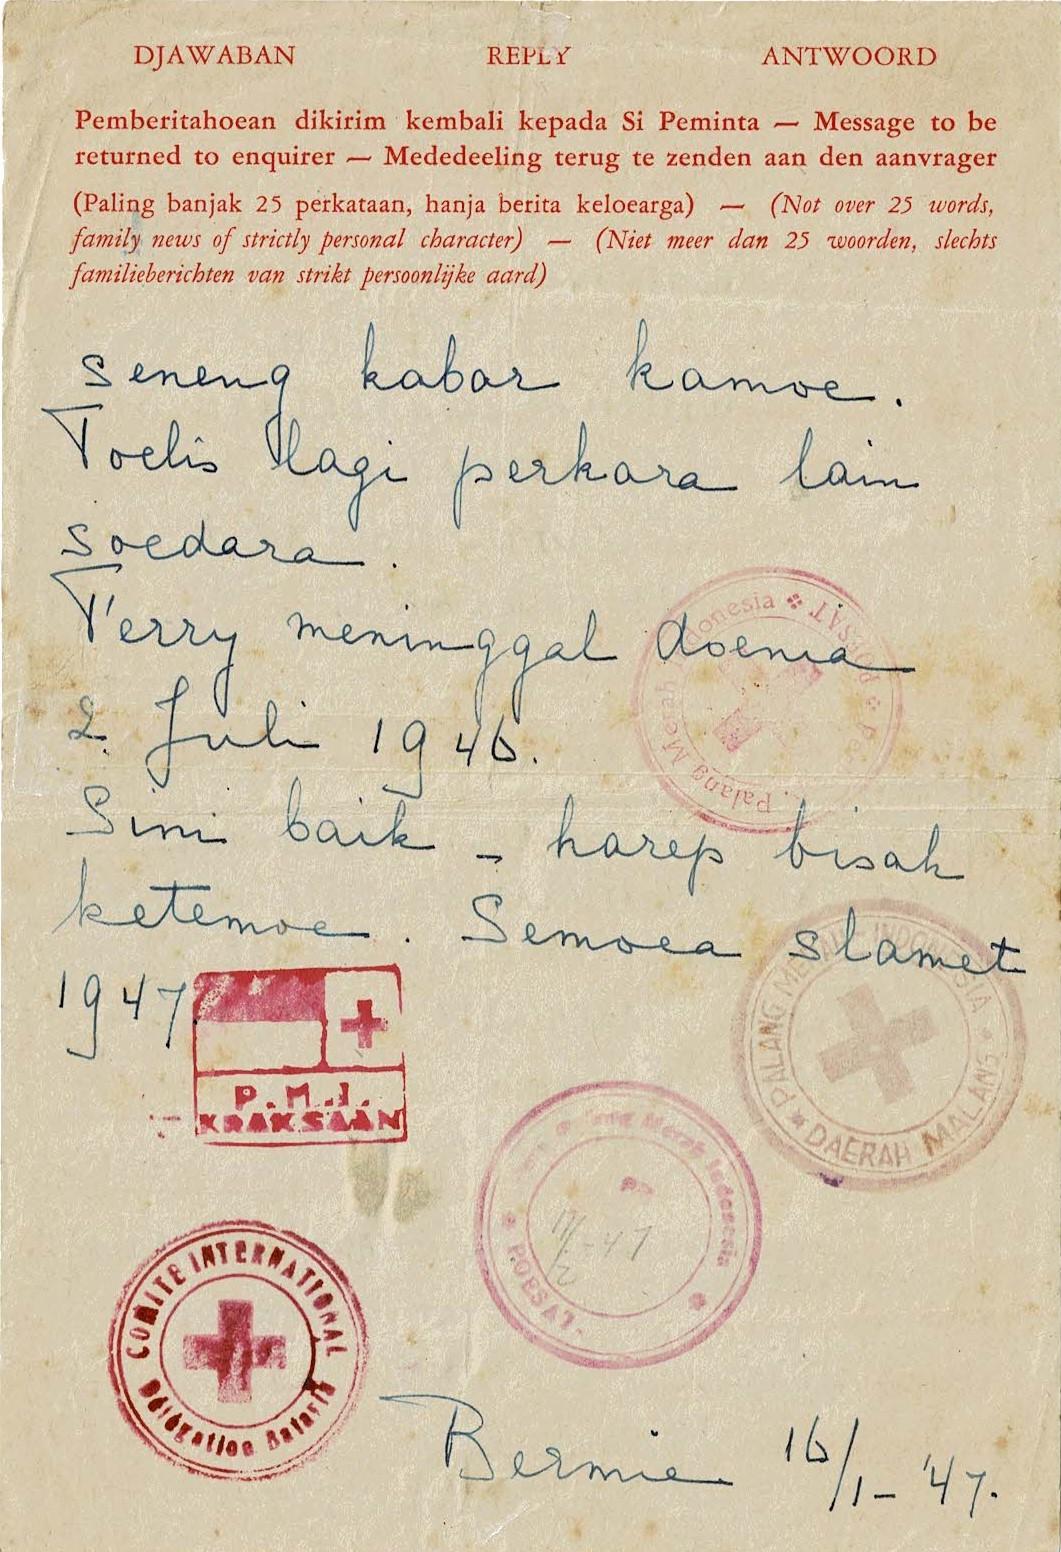 DJAWABAN REPLY ANTWOORD
Pemberitahoean dikirim kembali kepada Si Peminta — Message to be
returned to enquirer — Mededeeling terug te zenden aan den aanvrager
(Paling banjak 25 perkataan, hanja berita keloearga) — (Not over 25 words,
family news of strictly personal character) — (Niet meer dan 25 woorden, slechts
familieberichten van strikt persoonlijke aard)
Seneng kabar kamoe.
Toelis lagi perkara lain
soedara.
Ferry meninggal doenia
2 Juli 1946.
Sini baik – harep bisah
ketemoe. Semoea slamet
1947.
Palang Merah Indonesia POESAT
PALANG MERAH INDONESIA
DAERAH MALANG
P.M.I.
KRAKSAAN
Palang Merah Indonesia
POESAT
COMITE INTERNATIONAL
Délégation Batavia
Bernie 16/1-'47.